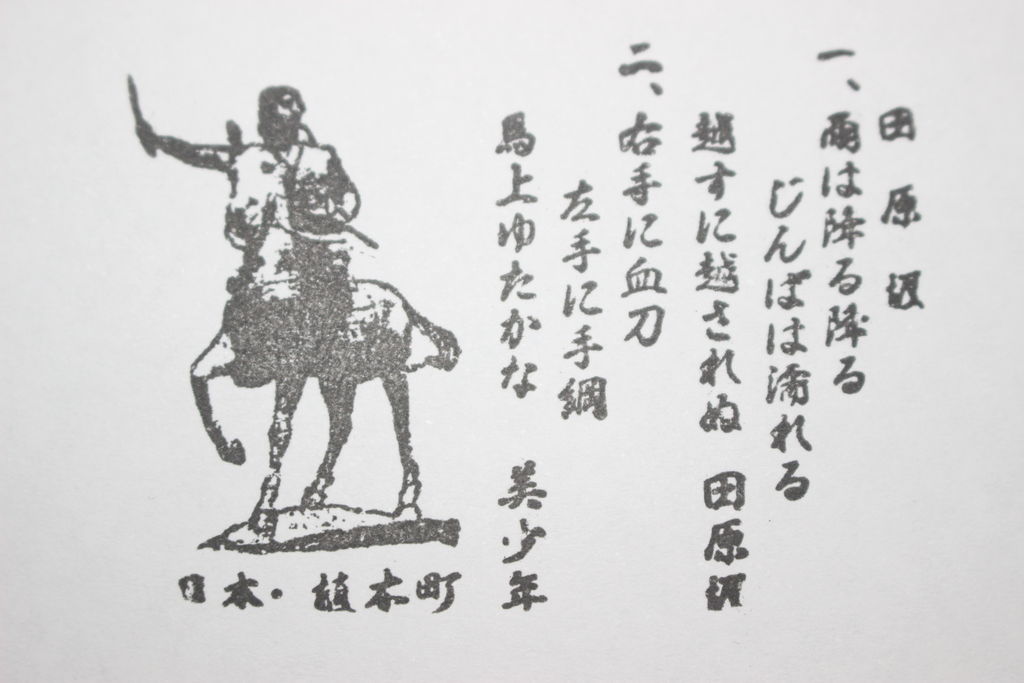 田原坂
一、雨は降る降る
じんばは濡れる
越すに越されぬ 田原坂
二、右手に血刀
左手に手綱
馬上ゆたかな 美少年
日本・植木町